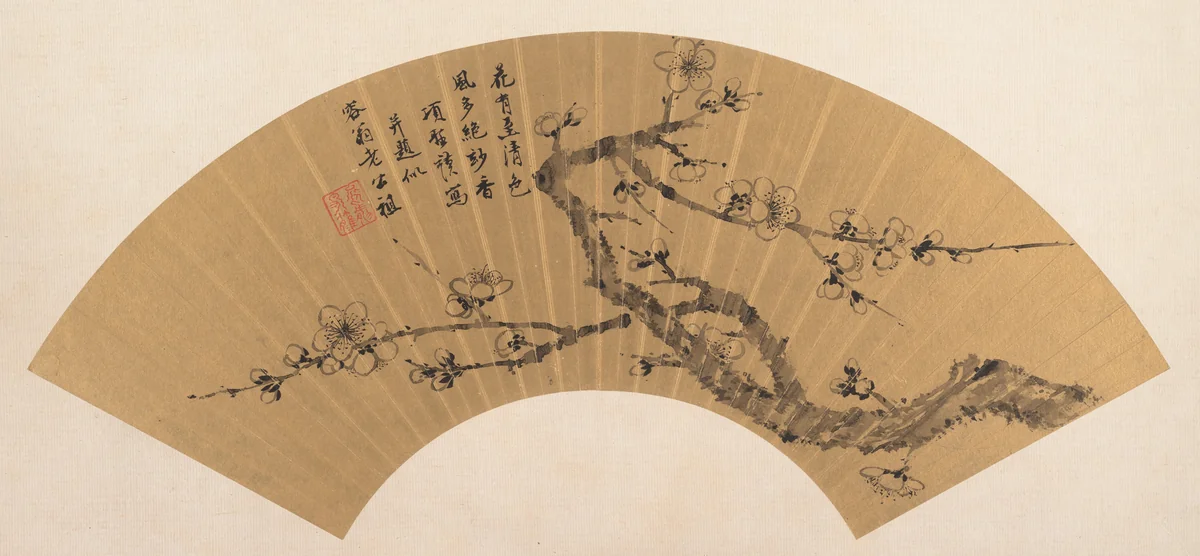 花有至清色
風多絶玅香
項聖謨寫
并題似
容翁老公祖